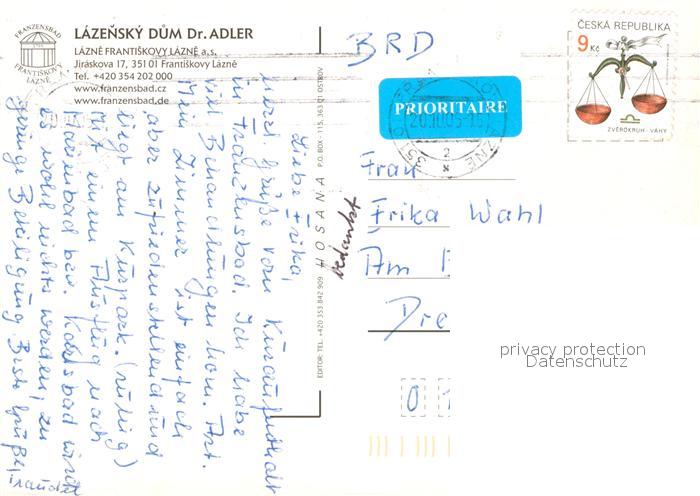 FRANZENSBAD
FRANTIŠKOVY LÁZNĚ
LÁZEŇSKÝ DŮM Dr. ADLER
LÁZNĚ FRANTIŠKOVY LÁZNĚ a.s.
Jiráskova 17, 35101 Františkovy Lázně
Tel. +420 354 202 000
www.franzensbad.cz
www.franzensbad.de
Liebe Erika,
herzl. Grüße vom Kuraufenthalt
in Franzensbad. Ich habe
viel Behandlungen hom. Art.
Mein Zimmer ist einfach
aber zufriedenstellend und
liegt am Kurpark. (ruhig)
Mit einem Ausflug nach
Marienbad bzw. Karlsbad wird
es wohl nichts werden, zu
geringe Beteiligung. Beste Grüße,
EDITOR: TEL. +420 353 842 909 HOSANA P.O. BOX - 115, 363 01 OSTROV
bedankt
BRD
PRIORITAIRE
ČESKÁ REPUBLIKA
9 Kč
ZVĚROKRUH - VÁHY
Frau
Erika Wahl
Am
Dre
0 1
privacy protection
Datenschutz